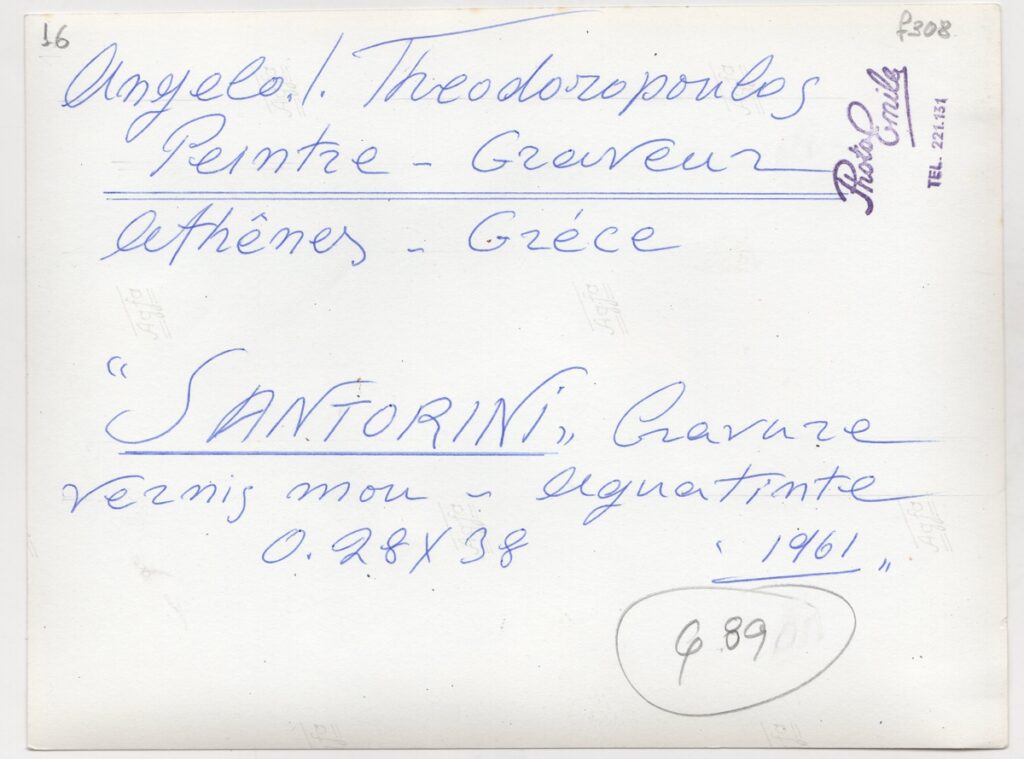 16
f308
Angelo. I. Theodoropoulos
Peintre - Graveur
Athênes - Gréce
Photo Emile
TEL. 221.131
"SANTORINI" Gravure
vernis mou - Aguatinte
0.28X38 "1961"
φ 89
Agfa
Agfa